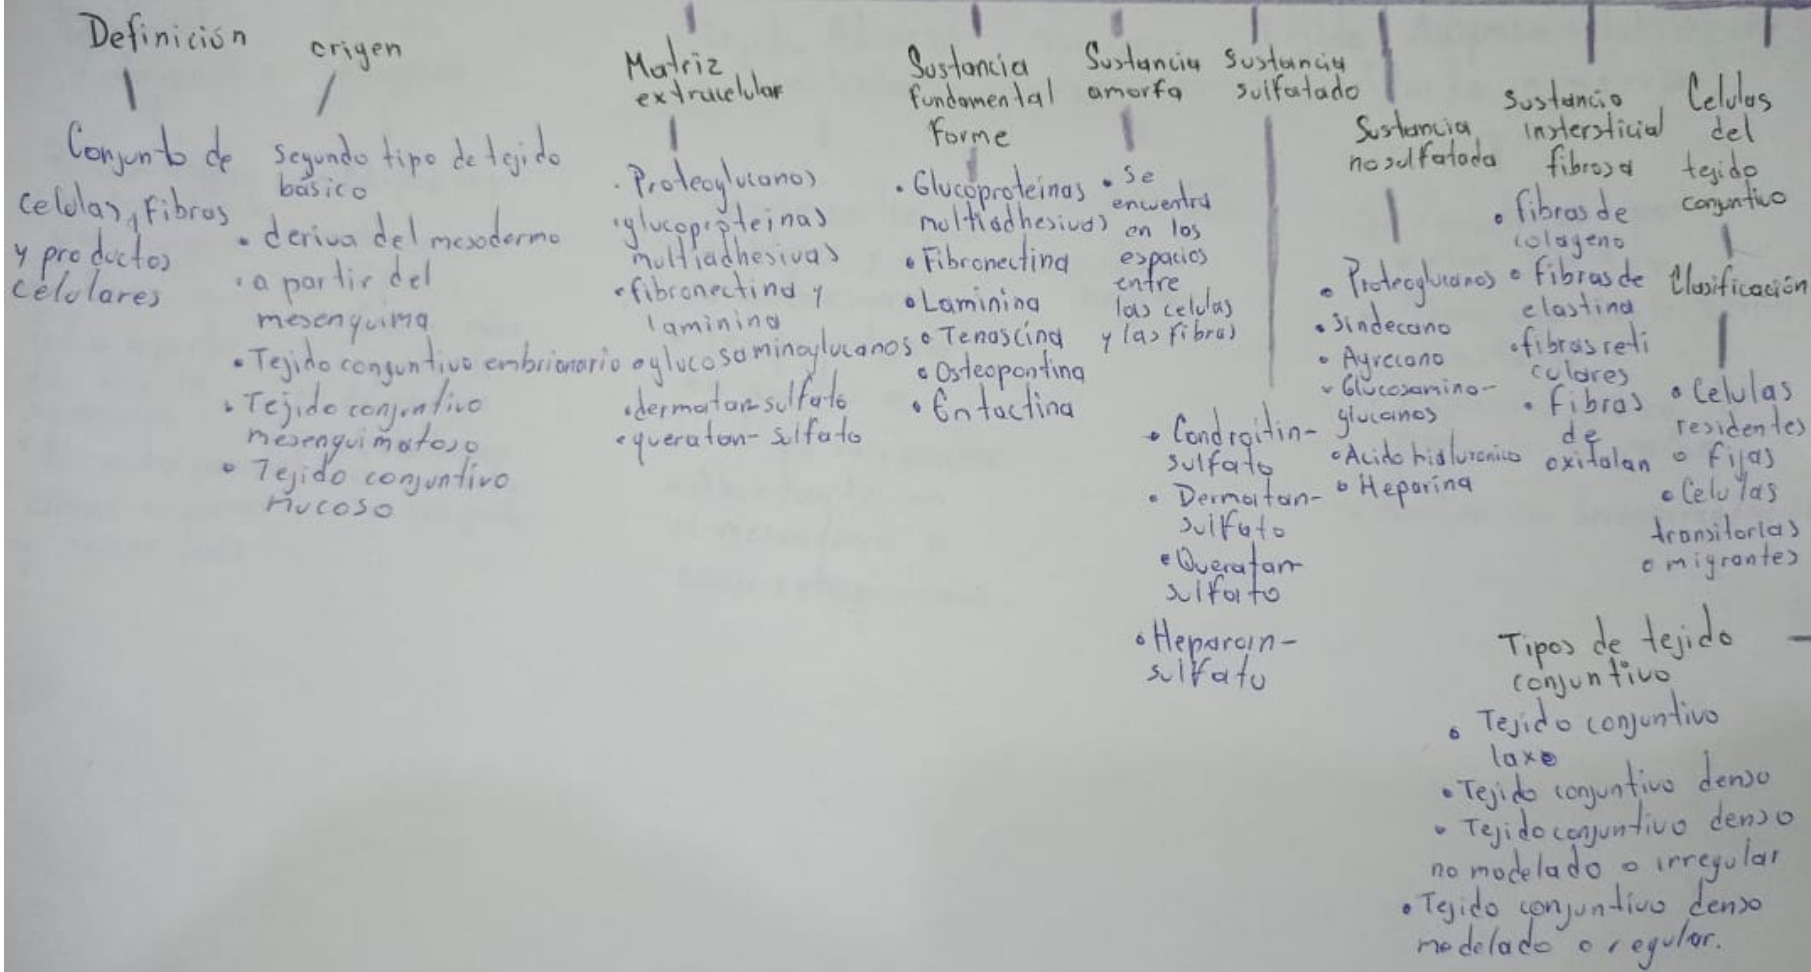 Definición
Conjunto de
celulas, fibras
y productos
celulares
origen
segundo tipo de tejido
básico
• deriva del mesodermo
• a partir del
mesenquima
• Tejido conjuntivo embrionario
• Tejido conjuntivo
mesenquimatoso
• Tejido conjuntivo
mucoso
Matriz
extracelular
• Proteoglucanos
• glucoproteinas
multiadhesivas
• fibronectina y
laminina
• glucosaminoglucanos
• dermatan-sulfato
• queratan-sulfato
Sustancia
fundamental
Forme
• Glucoproteinas
multiadhesivas
• Fibronectina
• Laminina
• Tenascina
• Osteopontina
• Entactina
Sustancia
amorfa
• se
encuentra
en los
espacios
entre
las celulas
y las fibras
Sustancia
sulfatado
• Condroitin-
sulfato
• Dermatan-
sulfato
• Queratan-
sulfato
• Heparain-
sulfato
Sustancia
no sulfatada
• Proteoglucanos
• Sindecano
• Agrecano
• Glucosamino-
glucanos
• Acido hialuronico
• Heparina
Sustancia
instersticial
fibrosa
• fibras de
colageno
• Fibras de
elastina
• fibras reti
culares
• Fibras
de
oxitalan
Celulas
del
tejido
conjuntivo
Clasificación
• Celulas
residentes
o fijas
• Celulas
transitorias
o migrantes
Tipos de tejido
conjuntivo
• Tejido conjuntivo
laxo
• Tejido conjuntivo denso
• Tejido conjuntivo denso
no modelado o irregular
• Tejido conjuntivo denso
modelado o regular.